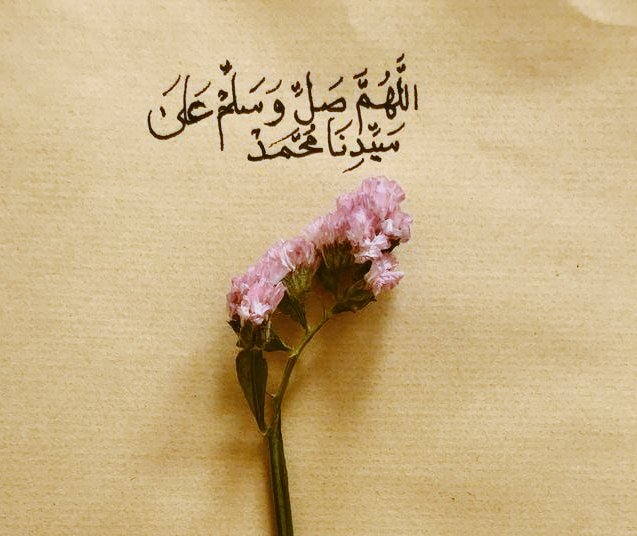 اللَّهُمَّ صَلِّ وَسَلِّمْ عَلَىٰ
سَيِّدِنَا مُحَمَّدْ